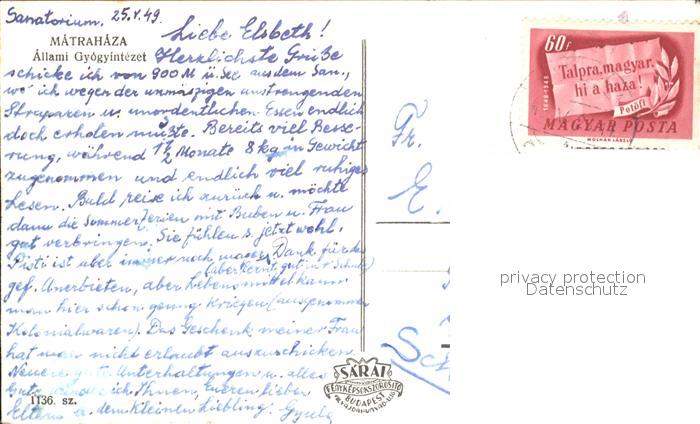 Sanatorium. 25.V.49.
Liebe Elsbeth!
MÁTRAHÁZA
Állami Gyógyintézet
Herzlichste Grüße
schicke ich von 900 M ü. See aus dem San.,
wo ich wegen der unmäszigen anstrengenden
Strapazen u. unordentlichen Essen endlich
doch erholen müßte. Bereits viel Besse-
rung, während 1½ Monate 8 kg in Gewicht
zugenommen und endlich viel ruhiges
Lesen. Bald reise ich zurück u. möchte
dann die Sommerferien mit Buben u. Frau
gut verbringen. Sie fühlen s. jetzt wohl,
Pisti ist aber immer noch mager. Dank für das
(aber lernt gut in d. Schule)
gef. Anerbieten, aber Lebensmittel kann
man hier schon genug kriegen (ausgenommen
Kolonialwaren). Das Geschenk meiner Frau
hat man nicht erlaubt auszuschicken.
Neuere gute Unterhaltungen u. alles
Gute wünsche ich Ihnen, Eueren lieben
Eltern u. dem kleinen Liebling. Gyula
1136. sz.
SÁRAI
FÉNYKÉPSOKSZOROSÍTÓ
BUDAPEST
Fr.
E.
Sch
60f
Talpra, magyar,
hi a haza!
Petőfi
1848-1948
MAGYAR POSTA
privacy protection
Datenschutz